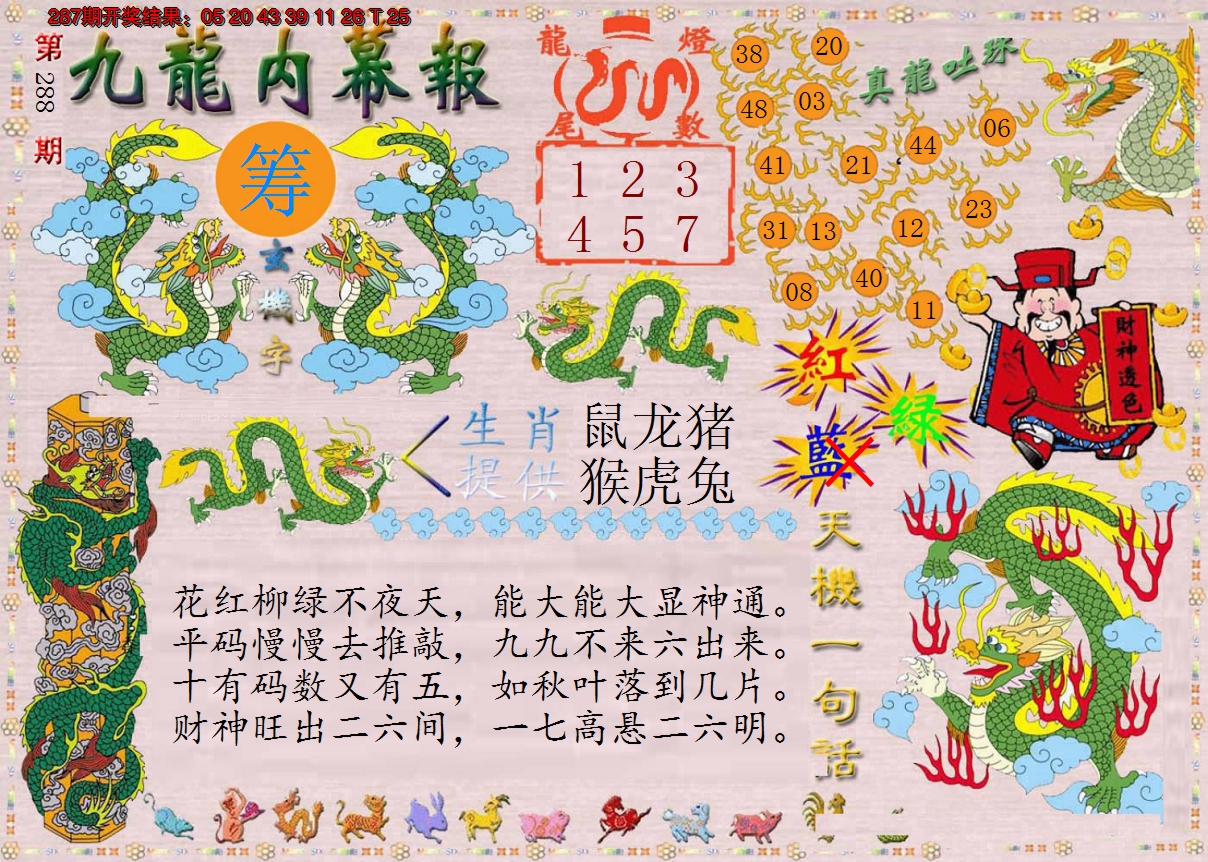 287期开奖结果：05 20 43 39 11 26 T 25
第288期
九龍内幕報
筹
玄機字
龍燈
尾數
1 2 3
4 5 7
真龍吐珠
38
20
48
03
44
06
41
21
23
31
13
12
08
40
11
財神透色
紅
绿
藍
生肖
提供
鼠龙猪
猴虎兔
花红柳绿不夜天，能大能大显神通。
平码慢慢去推敲，九九不来六出来。
十有码数又有五，如秋叶落到几片。
财神旺出二六间，一七高悬二六明。
天機一句话